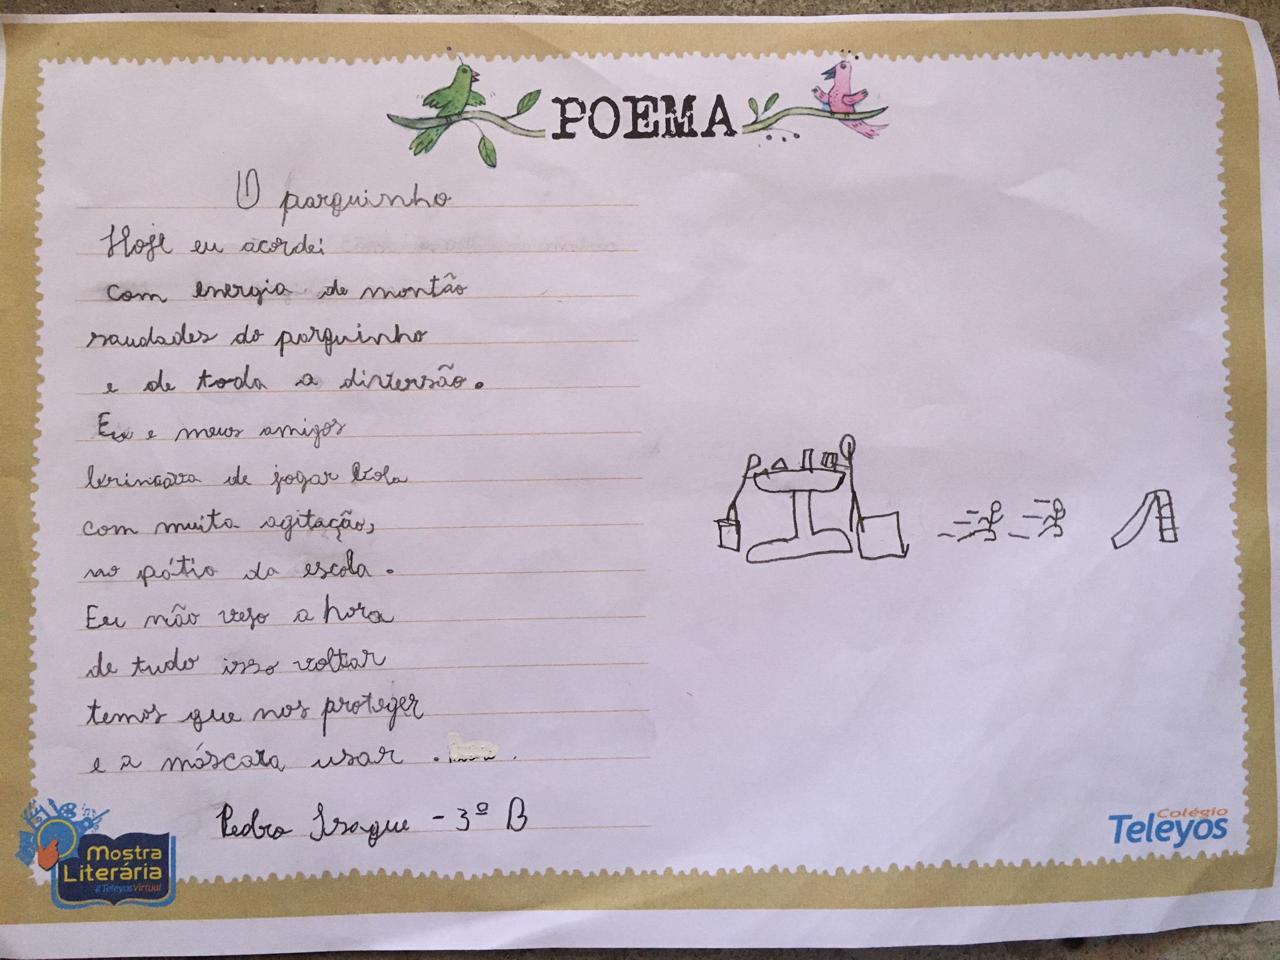 POEMA
O parquinho
Hoje eu acordei
com energia de montão
saudades do parquinho
e de toda a diversão.
Eu e meus amigos
brincava de jogar bola
com muita agitação,
no pátio da escola.
Eu não vejo a hora
de tudo isso voltar
temos que nos proteger
e a máscara usar.
Pedro Isaque - 3º B
Mostra
Literária
#TeleyosVirtual
Colégio
Teleyos